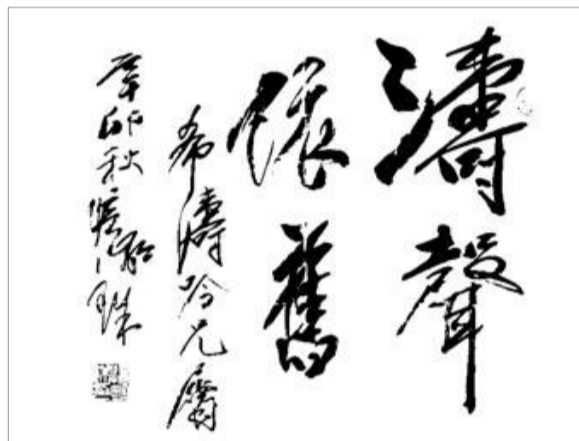 濤聲
依舊
希濤吟兄屬
辛卯秋